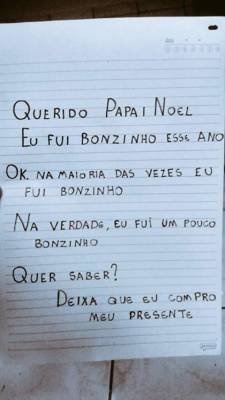 QUERIDO PAPAI NOEL
EU FUI BONZINHO ESSE ANO
OK. NA MAIORIA DAS VEZES EU
FUI BONZINHO
NA VERDADE, EU FUI UM POUCO
BONZINHO
QUER SABER?
DEIXA QUE EU COMPRO
MEU PRESENTE